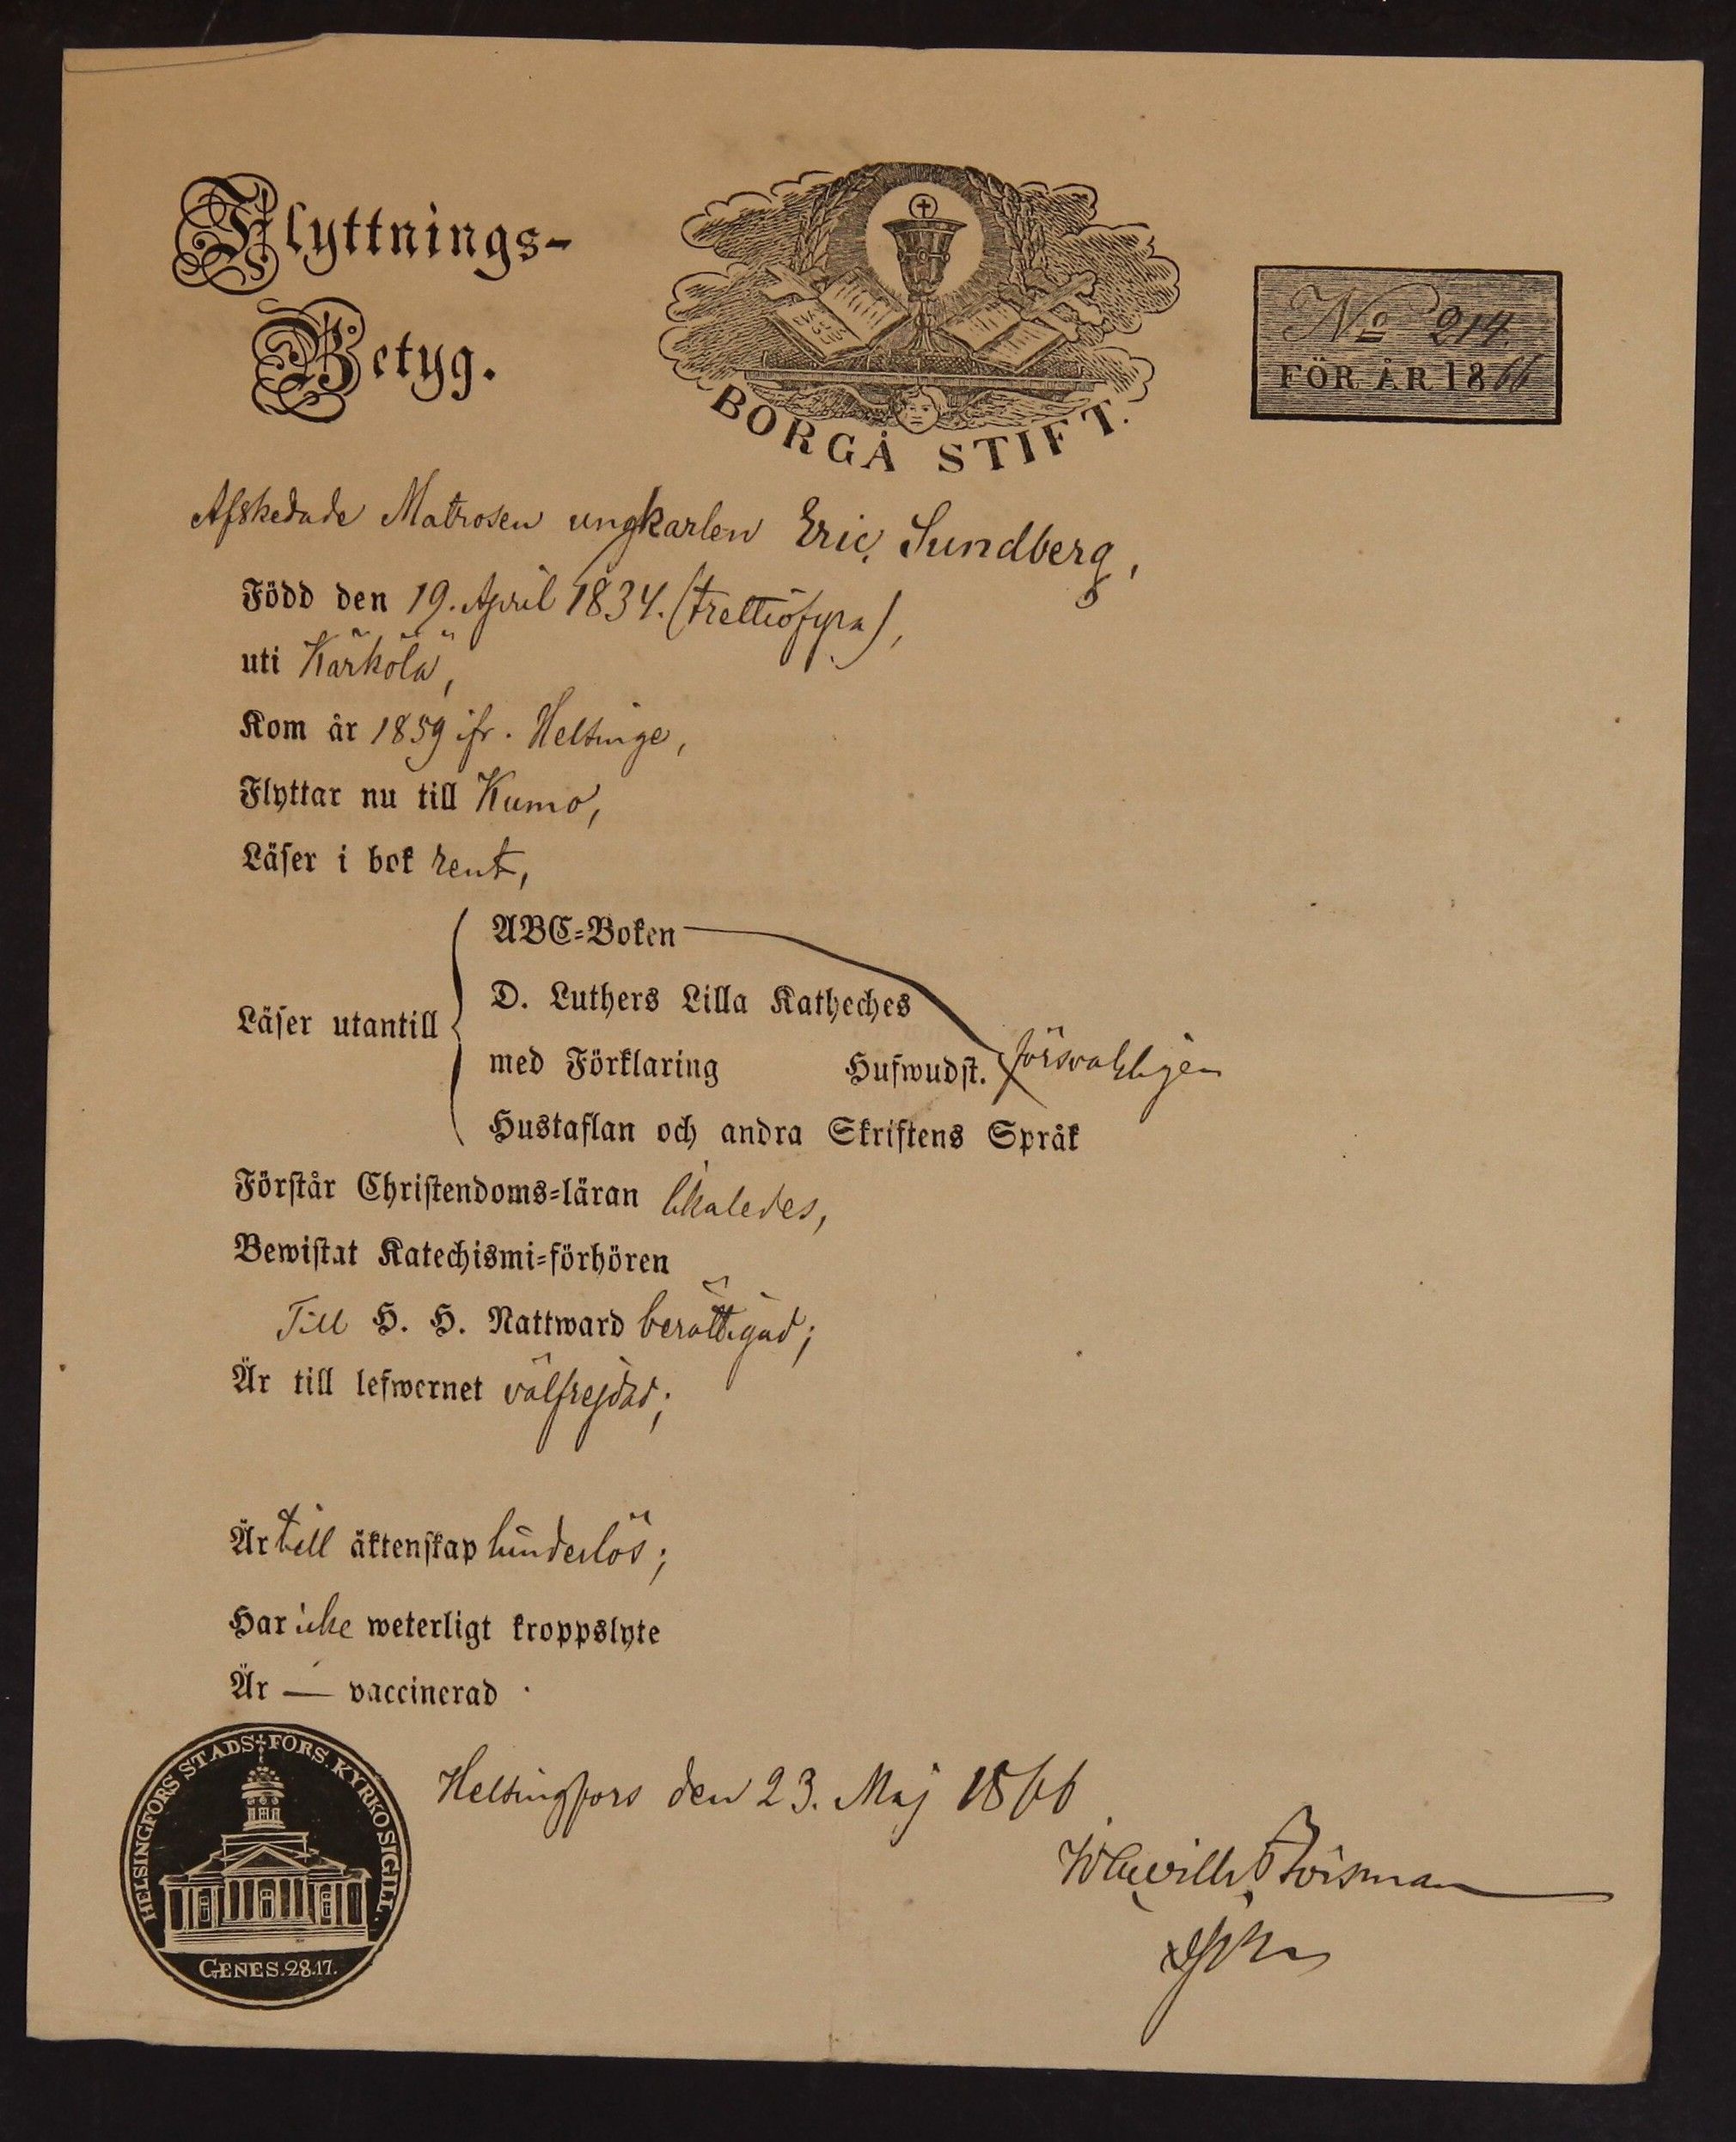 Flyttnings-
Betyg.
EVANG
BORGÅ STIFT.
No 214.
FÖR ÅR 1866
Afskedade Matrosen ungkarlen Eric Sundberg,
Född den 19. April 1834. (trettiofyra),
uti Kärkölä,
Kom år 1859 ifr. Helsinge,
Flyttar nu till Kumo,
Läser i bok rent,
Läser utantill
ABC-Boken
D. Luthers Lilla Katheches
med Förklaring Hufwudst. försvarligen
Hustaflan och andra Skriftens Språk
Förstår Christendoms-läran likaledes,
Bewistat Katechismi-förhören
Till H. H. Nattward berättigad;
Är till lefwernet välfrejdad;
Är till äktenskap hinderlös;
Har icke weterligt kroppslyte
Är — vaccinerad
Helsingfors den 23. Maj 1866
HELSINGFORS STADS FÖRS. KYRKO SIGILL.
GENES. 28.17.